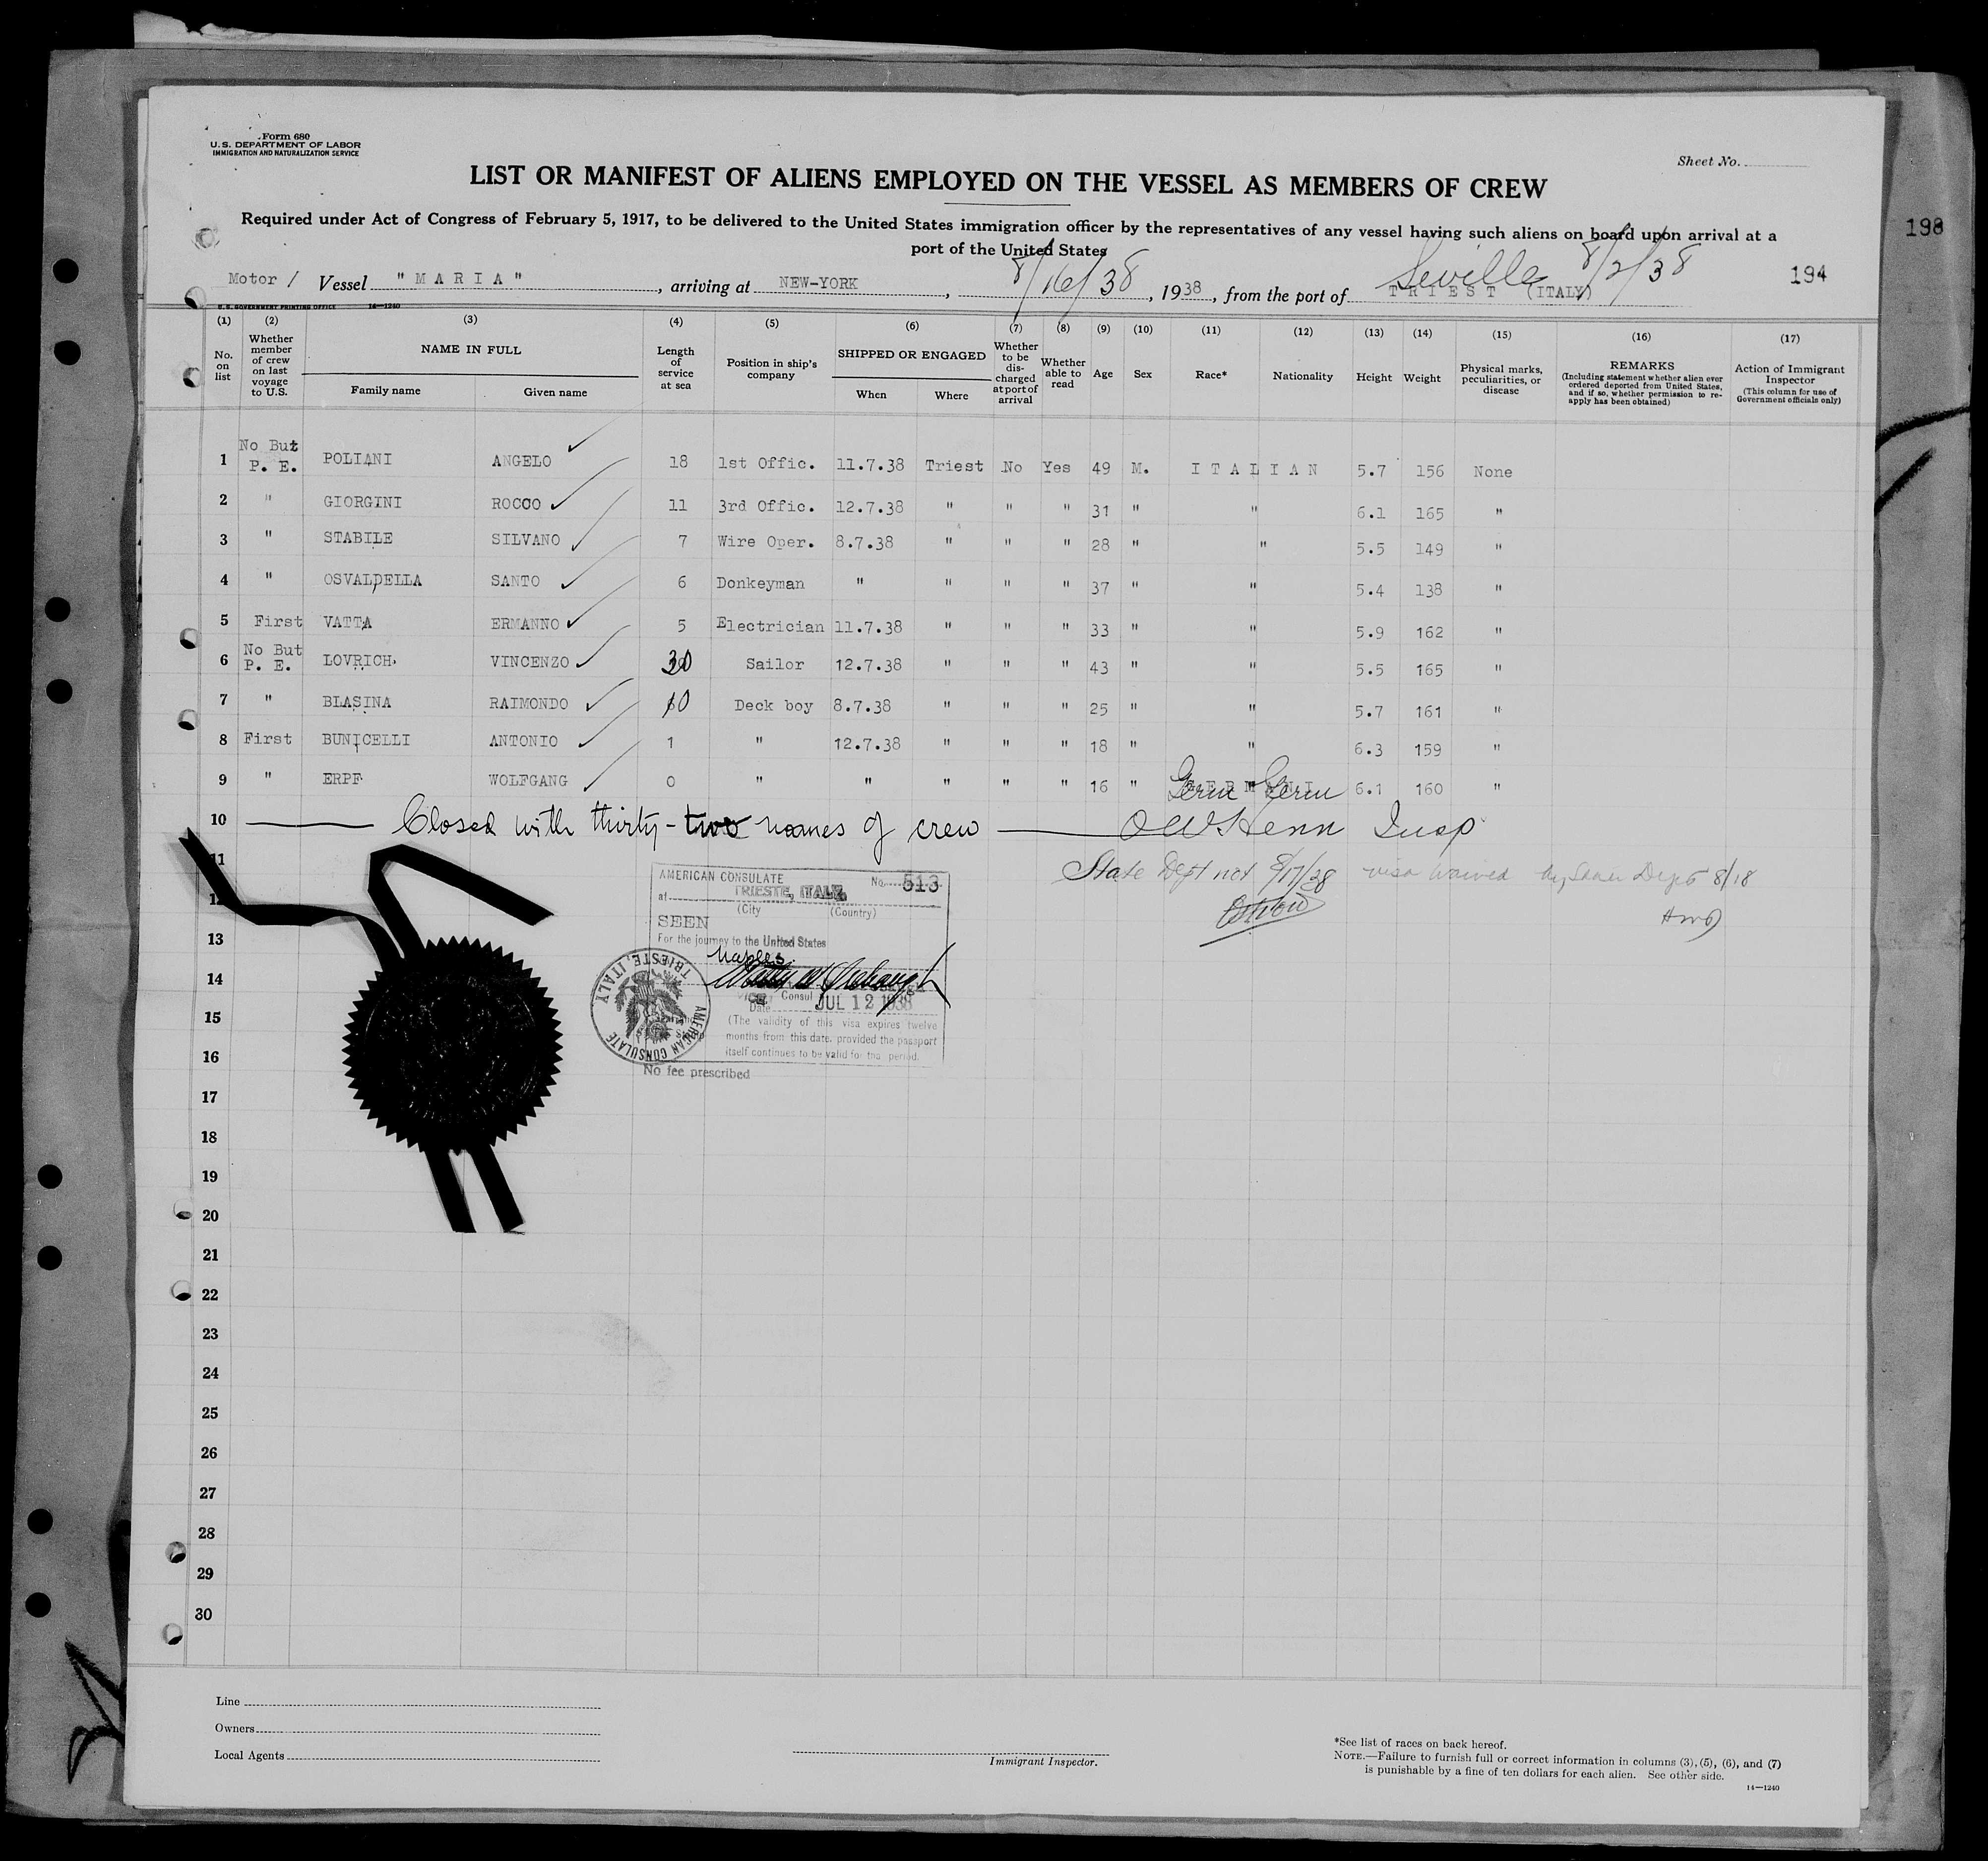 Form 680
U.S. DEPARTMENT OF LABOR
IMMIGRATION AND NATURALIZATION SERVICE
Sheet No.
LIST OR MANIFEST OF ALIENS EMPLOYED ON THE VESSEL AS MEMBERS OF CREW
Required under Act of Congress of February 5, 1917, to be delivered to the United States immigration officer by the representatives of any vessel having such aliens on board upon arrival at a
port of the United States
198
Motor / Vessel "MARIA", arriving at NEW-YORK, 8/16/38, 1938, from the port of TRIEST (ITALY) Seville 8/2/38
194
U.S. GOVERNMENT PRINTING OFFICE 14—1240
(1) (2) (3) (4) (5) (6) (7) (8) (9) (10) (11) (12) (13) (14) (15) (16) (17)
No. on list
Whether member of crew on last voyage to U.S.
NAME IN FULL
Family name Given name
Length of service at sea
Position in ship's company
SHIPPED OR ENGAGED
When Where
Whether to be discharged at port of arrival
Whether able to read
Age
Sex
Race*
Nationality
Height
Weight
Physical marks, peculiarities, or disease
REMARKS
(Including statement whether alien ever ordered deported from United States, and if so, whether permission to re-apply has been obtained)
Action of Immigrant Inspector
(This column for use of Government officials only)
1 No But P. E. POLIANI ANGELO 18 1st Offic. 11.7.38 Triest No Yes 49 M. ITALIAN 5.7 156 None
2 " GIORGINI ROCCO 11 3rd Offic. 12.7.38 " " " 31 " " 6.1 165 "
3 " STABILE SILVANO 7 Wire Oper. 8.7.38 " " " 28 " " 5.5 149 "
4 " OSVALDELLA SANTO 6 Donkeyman " " " " 37 " " 5.4 138 "
5 First VATTA ERMANNO 5 Electrician 11.7.38 " " " 33 " " 5.9 162 "
6 No But P. E. LOVRICH VINCENZO 30 Sailor 12.7.38 " " " 43 " " 5.5 165 "
7 " BLASINA RAIMONDO 10 Deck boy 8.7.38 " " " 25 " " 5.7 161 "
8 First BUNICELLI ANTONIO 1 " 12.7.38 " " " 18 " " 6.3 159 "
9 " ERPF WOLFGANG 0 " " " " " 16 " Germ Germ 6.1 160 "
10 Closed with thirty-two names of crew OWHenn Insp
11
State Dept not 8/17/38 visa waived by State Dept 8/18
12
13
14
15
16
17
18
19
20
21
22
23
24
25
26
27
28
29
30
AMERICAN CONSULATE No. 513
at TRIESTE, ITALY
(City (Country)
SEEN
For the journey to the United States
Naples
Vice Consul
Date JUL 12 1938
(The validity of this visa expires twelve
months from this date, provided the passport
itself continues to be valid for the period.
No fee prescribed
AMERICAN CONSULATE
TRIESTE, ITALY
Line
Owners
Local Agents
Immigrant Inspector.
*See list of races on back hereof.
NOTE.—Failure to furnish full or correct information in columns (3), (5), (6), and (7)
is punishable by a fine of ten dollars for each alien. See other side.
14—1240